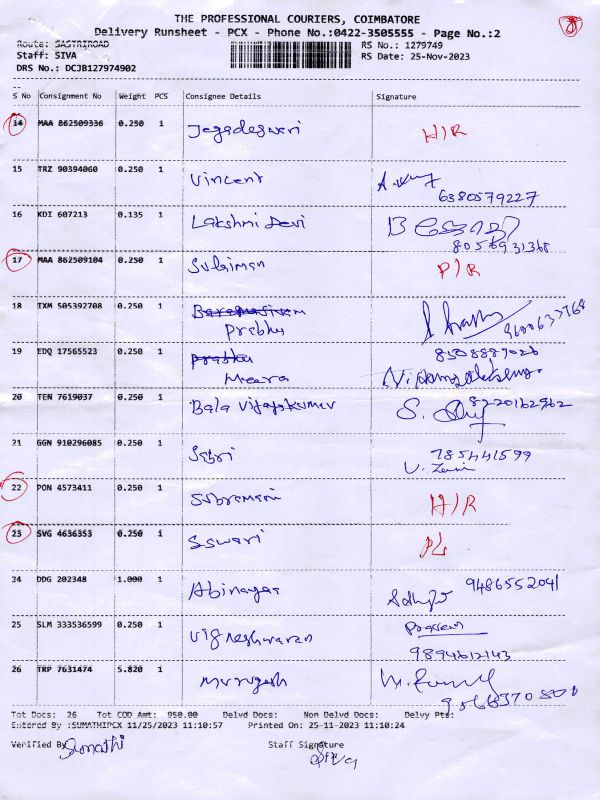 THE PROFESSIONAL COURIERS, COIMBATORE
Delivery Runsheet - PCX - Phone No.:0422-3505555 - Page No.:2
Route: SASTRIROAD RS No.: 1279749
Staff: SIVA RS Date: 25-Nov-2023
DRS No.: DCJB127974902
S No Consignment No Weight PCS Consignee Details Signature
14 MAA 862509336 0.250 1 Jegadeswari H/R
15 TRZ 90394060 0.250 1 Vincent
6380579227
16 KDI 607213 0.135 1 Lakshmi Devi
8056931368
17 MAA 862509104 0.250 1 Sulaiman P/R
18 TXM 505392708 0.250 1
Prabhu 9600633768
19 EDQ 17565523 0.250 1 prabhu 8508889026
Meera
20 TEN 7619037 0.250 1 Bala Vijayakumar 8220162962
21 GGN 910296085 0.250 1 Sabri 785441599
22 PON 4573411 0.250 1 Subramani H/R
23 SVG 4636353 0.250 1 Sswari
24 DDG 202348 1.000 1 Abinayas 9486552041
25 SLM 333536599 0.250 1 Vigneshwaran
9894612143
26 TRP 7631474 5.820 1 Murugesh
Tot Docs: 26 Tot COD Amt: 950.00 Delvd Docs: Non Delvd Docs: Delvy Pts:
Entered By :SUMATHIPCX 11/25/2023 11:10:57 Printed On: 25-11-2023 11:10:24
Verified By Sumathi Staff Signature